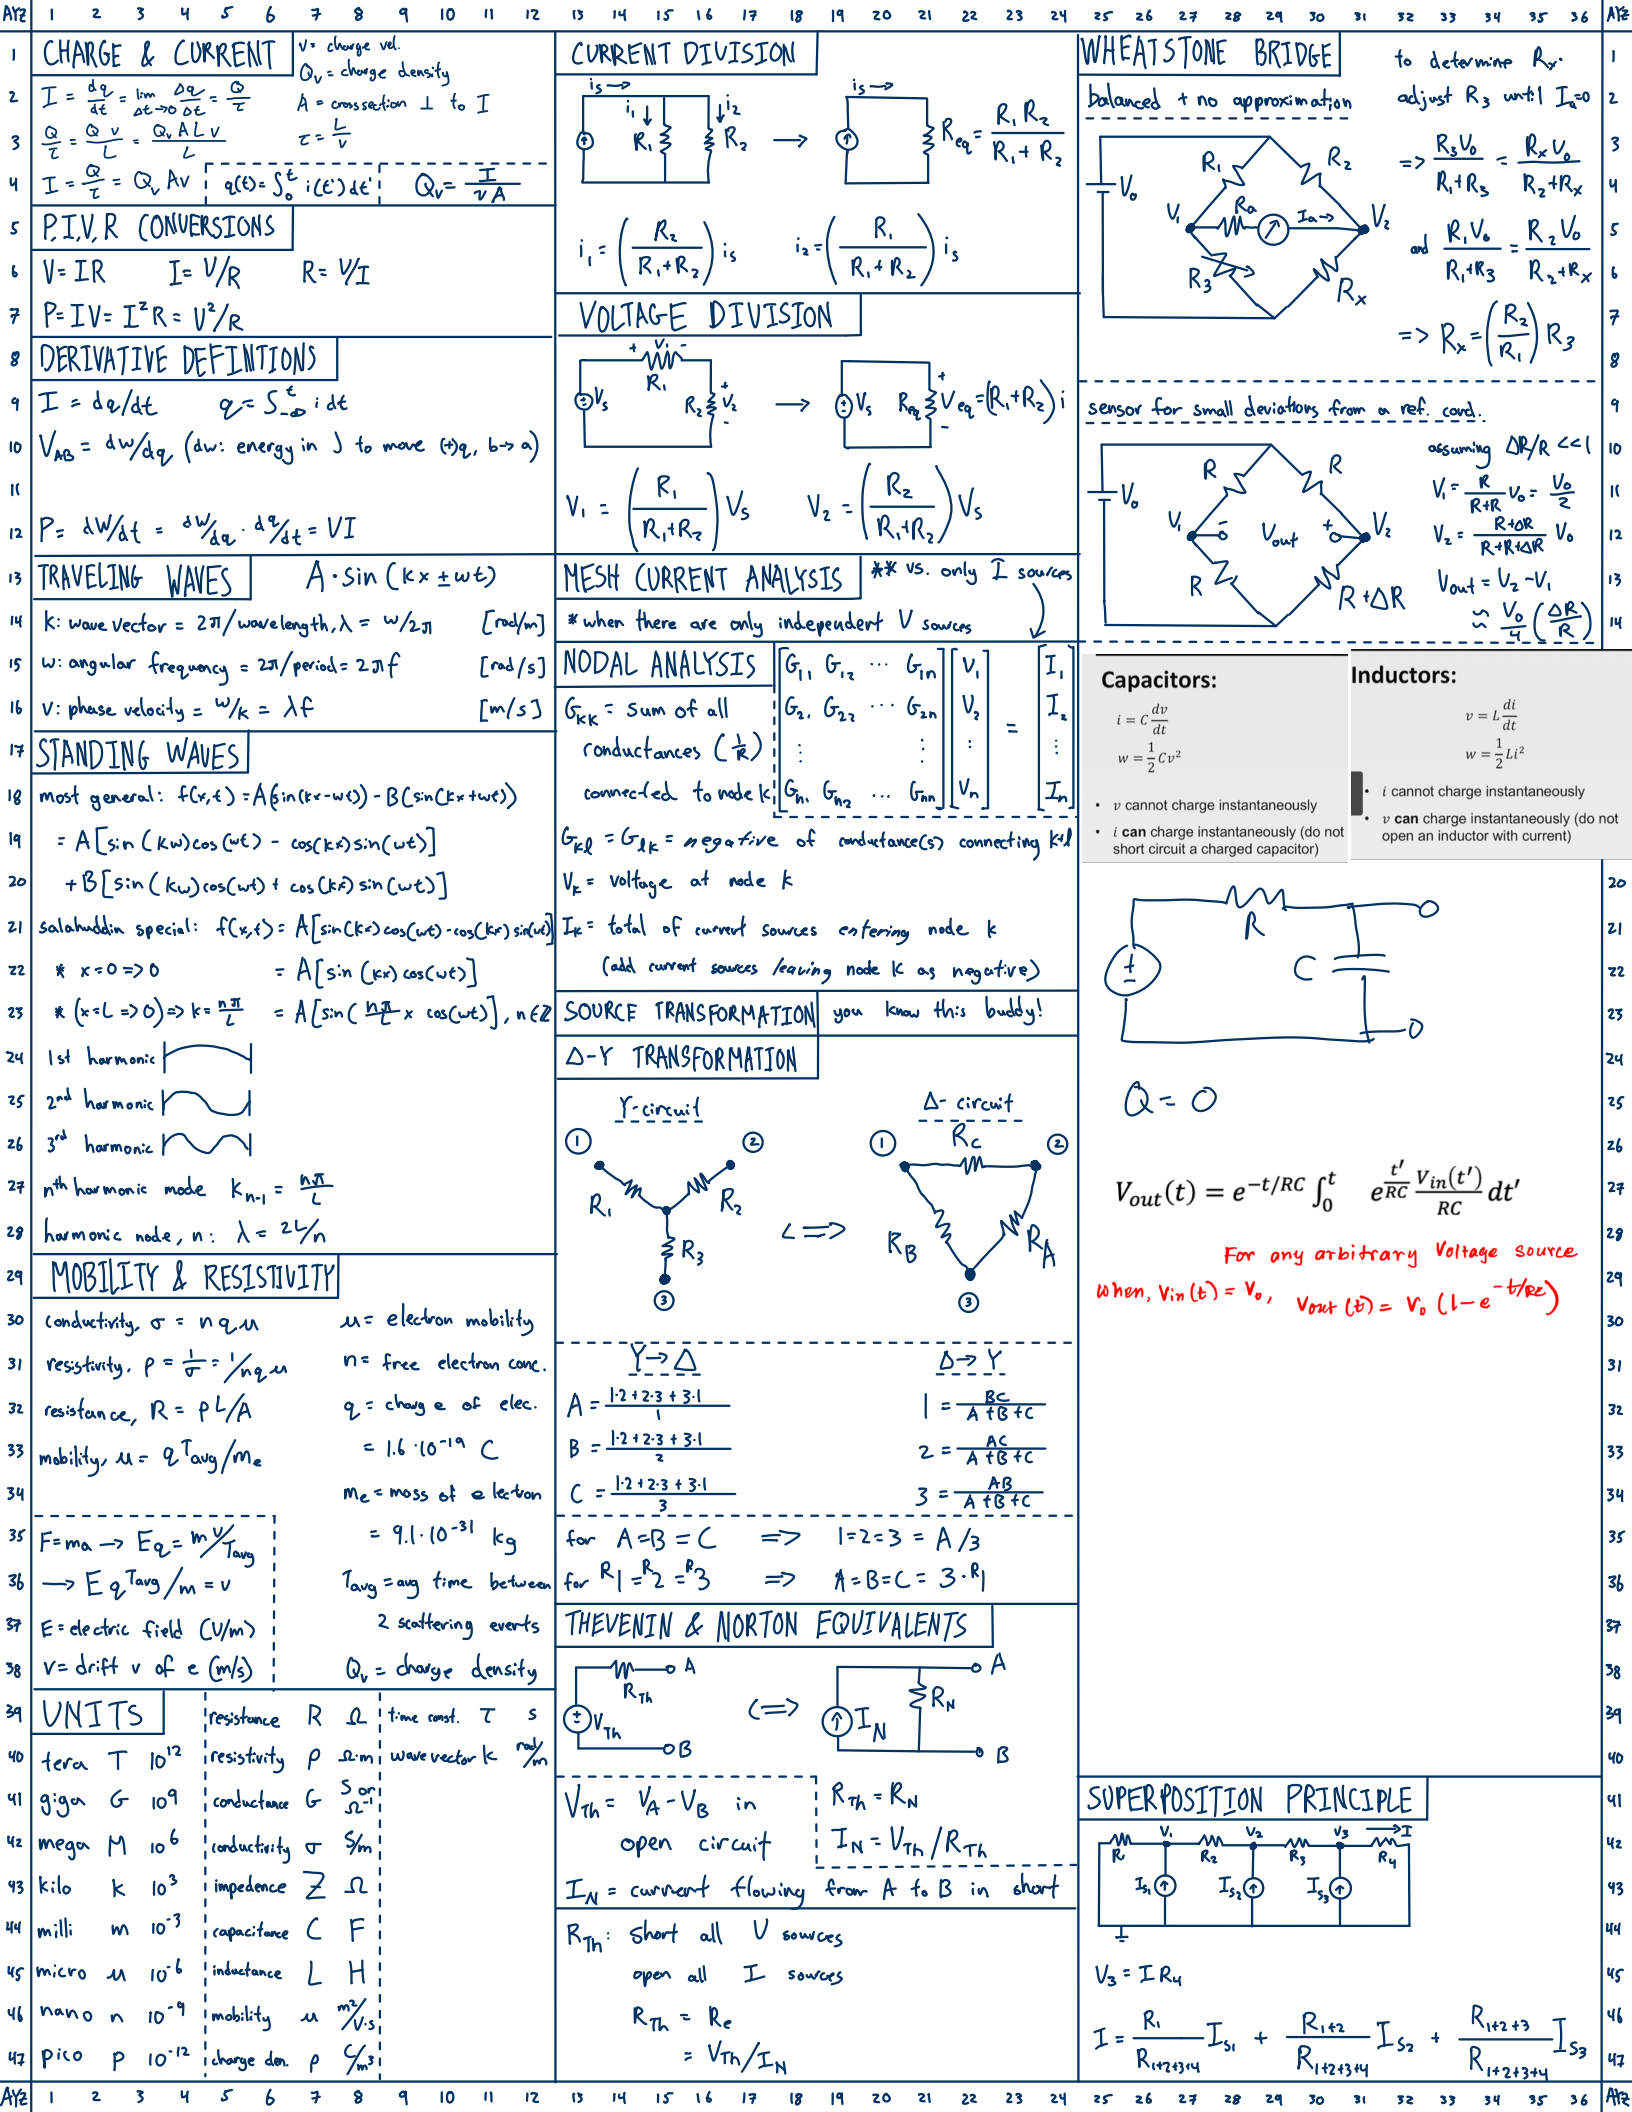 AYZ 1 2 3 4 5 6 7 8 9 10 11 12 13 14 15 16 17 18 19 20 21 22 23 24 25 26 27 28 29 30 31 32 33 34 35 36 AYZ
CHARGE & CURRENT
v = charge vel.
Qv = charge density
A = cross section ⊥ to I
τ = L/v
I = dq/dt = lim Δt→0 Δq/Δt = Q/τ
Q/τ = Q v/L = Qv A L v/L
I = Q/τ = Qv A v
q(t) = ∫₀ᵗ i(t') dt'
Qv = I/vA
P,I,V,R CONVERSIONS
V = IR I = V/R R = V/I
P = IV = I²R = V²/R
DERIVATIVE DEFINTIONS
I = dq/dt q = ∫-∞ᵗ i dt
V_AB = dw/dq (dw: energy in J to move (+)q, b→a)
P = dW/dt = dW/dq · dq/dt = VI
TRAVELING WAVES A·sin(kx ± wt)
k: wave vector = 2π/wavelength, λ = w/2π [rad/m]
w: angular frequency = 2π/period = 2πf [rad/s]
v: phase velocity = w/k = λf [m/s]
STANDING WAVES
most general: f(x,t) = A(sin(kx-wt)) - B(sin(kx+wt))
= A[sin(kw)cos(wt) - cos(kx)sin(wt)]
+ B[sin(kw)cos(wt) + cos(kx)sin(wt)]
salahuddin special: f(x,t) = A[sin(kx)cos(wt)-cos(kx)sin(wt)]
* x=0 => 0 = A[sin(kx)cos(wt)]
* (x=L => 0) => k = nπ/L = A[sin(nπ/L x cos(wt)], n∈Z
1st harmonic
2nd harmonic
3rd harmonic
nth harmonic mode K_n-1 = nπ/L
harmonic node, n: λ = 2L/n
MOBILITY & RESISTIVITY
conductivity, σ = nqμ μ = electron mobility
resistivity, ρ = 1/σ = 1/nqμ n = free electron conc.
resistance, R = ρL/A q = charge of elec.
mobility, μ = qTavg/me = 1.6·10⁻¹⁹ C
me = mass of electron
= 9.1·10⁻³¹ kg
F=ma → Eq = m v/Tavg
→ E qTavg/m = v
E = electric field (V/m)
v = drift v of e (m/s)
Tavg = avg time between
2 scattering events
Qv = charge density
UNITS
tera T 10¹²
giga G 10⁹
mega M 10⁶
kilo k 10³
milli m 10⁻³
micro μ 10⁻⁶
nano n 10⁻⁹
pico p 10⁻¹²
resistance R Ω
resistivity ρ Ω·m
conductance G S or Ω⁻¹
conductivity σ S/m
impedence Z Ω
capacitance C F
inductance L H
mobility μ m²/V·s
charge den. ρ C/m³
time const. τ s
wave vector k rad/m
CURRENT DIVISION
is→ i₁↓ ↓i₂ R₁ R₂ → is→ Req = R₁R₂/R₁+R₂
i₁ = (R₂/R₁+R₂) is i₂ = (R₁/R₁+R₂) is
VOLTAGE DIVISION
+ V₁ - R₁ Vs R₂ + V₂ - → Vs Req + Veq = (R₁+R₂) i -
V₁ = (R₁/R₁+R₂) Vs V₂ = (R₂/R₁+R₂) Vs
MESH CURRENT ANALYSIS ** vs. only I sources
* when there are only independent V sources
NODAL ANALYSIS
G₁₁ G₁₂ ... G₁n V₁ I₁
G₂₁ G₂₂ ... G₂n V₂ = I₂
⋮ ⋮ ⋮ ⋮
Gn₁ Gn₂ ... Gnn Vn In
Gkk = sum of all
conductances (1/R)
connected to node k
Gkl = Glk = negative of conductance(s) connecting k+l
Vk = voltage at node k
Ik = total of current sources entering node k
(add current sources leaving node k as negative)
SOURCE TRANSFORMATION you know this buddy!
Δ-Y TRANSFORMATION
Y-circuit Δ-circuit
1 2 R₁ R₂ R₃ 3 <=> 1 2 Rc RB RA 3
Y→Δ Δ→Y
A = 1·2+2·3+3·1/1 1 = BC/A+B+C
B = 1·2+2·3+3·1/2 2 = AC/A+B+C
C = 1·2+2·3+3·1/3 3 = AB/A+B+C
for A=B=C => 1=2=3 = A/3
for R1=R2=R3 => A=B=C= 3·R1
THEVENIN & NORTON EQUIVALENTS
RTh A VTh B <=> IN RN A B
VTh = VA - VB in
open circuit
RTh = RN
IN = VTh/RTh
IN = current flowing from A to B in short
RTh: short all V sources
open all I sources
RTh = Re
= VTh/IN
WHEATSTONE BRIDGE
to determine Rx.
adjust R₃ until Ia=0
balanced + no approximation
V₀ R₁ R₂ V₁ Ra Ia→ V₂ R₃ Rx
=> R₃V₀/R₁+R₃ = RxV₀/R₂+Rx
and R₁V₀/R₁+R₃ = R₂V₀/R₂+Rx
=> Rx = (R₂/R₁) R₃
sensor for small deviations from a ref. cond.
V₀ R R V₁ - Vout + V₂ R R+ΔR
assuming ΔR/R <<1
V₁ = R/R+R V₀ = V₀/2
V₂ = R+ΔR/R+R+ΔR V₀
Vout = V₂-V₁
≈ V₀/4 (ΔR/R)
Capacitors:
i = C dv/dt
w = 1/2 Cv²
• v cannot charge instantaneously
• i can charge instantaneously (do not
short circuit a charged capacitor)
Inductors:
v = L di/dt
w = 1/2 Li²
• i cannot charge instantaneously
• v can charge instantaneously (do not
open an inductor with current)
R
C
Q = 0
Vout(t) = e^(-t/RC) ∫₀ᵗ e^(t'/RC) Vin(t')/RC dt'
For any arbitrary Voltage source
when, Vin(t) = V₀, Vout(t) = V₀ (1-e^(-t/RC))
SUPERPOSITION PRINCIPLE
R V₁ R₂ V₂ R₃ V₃ →I R₄
Is₁ Is₂ Is₃
V₃ = I R₄
I = R₁/R₁₊₂₊₃₊₄ Is₁ + R₁₊₂/R₁₊₂₊₃₊₄ Is₂ + R₁₊₂₊₃/R₁₊₂₊₃₊₄ Is₃
AYZ 1 2 3 4 5 6 7 8 9 10 11 12 13 14 15 16 17 18 19 20 21 22 23 24 25 26 27 28 29 30 31 32 33 34 35 36 AYZ